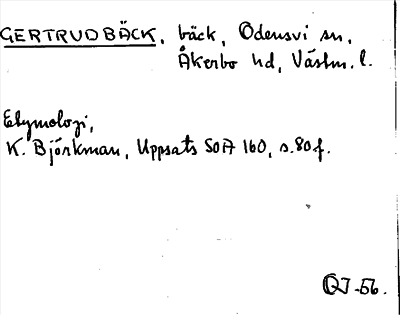 GERTRUDBÄCK, bäck, Odensvi sn,
Åkerbo hd, Västm. l.
Etymologi,
K. Björkman, Uppsats SOA 160, s. 80 f.
QJ-56.